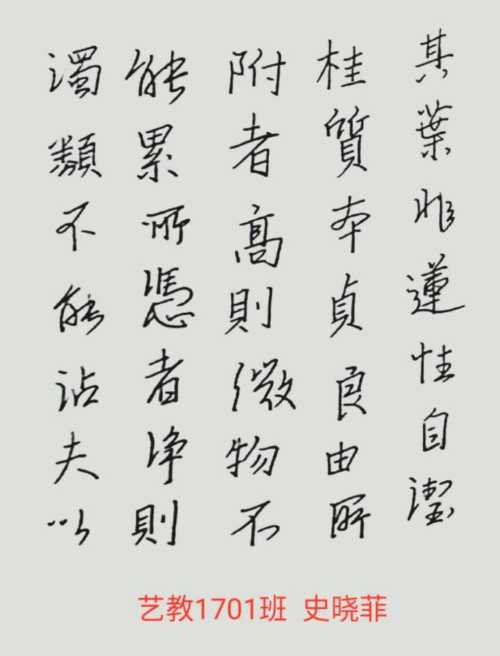 其葉非蓮性自潔
桂質本貞良由所
附者高則微物不
能累所憑者净則
濁類不能沾夫以
艺教1701班 史晓菲